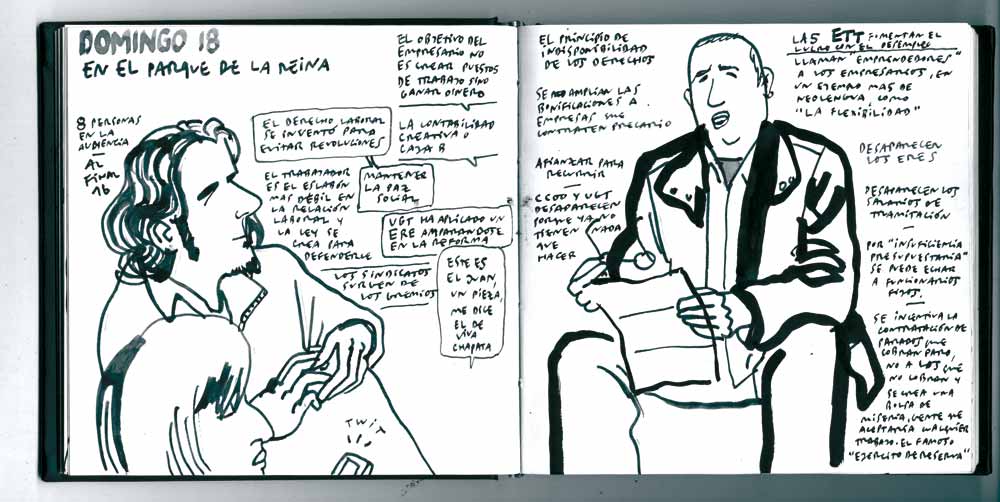 DOMINGO 18
EN EL PARQUE DE LA REINA
8 PERSONAS
EN LA
AUDIENCIA
AL
FINAL
16
EL OBJETIVO DEL
EMPRESARIO NO
ES CREAR PUESTOS
DE TRABAJO SINO
GANAR DINERO
EL DERECHO LABORAL
SE INVENTÓ PARA
EVITAR REVOLUCIONES
LA CONTABILIDAD
CREATIVA O
CAJA B
EL TRABAJADOR
ES EL ESLABÓN
MAS DÉBIL EN
LA RELACIÓN
LABORAL Y
LA LEY SE
CREA PARA
DEFENDERLE
MANTENER
LA PAZ
SOCIAL
UGT HA APLICADO UN
ERE AMPARANDOSE
EN LA REFORMA
LOS SINDICATOS
SURGEN DE
LOS GREMIOS
ESTE ES
EL JUAN,
UN PIEZA,
ME DICE
EL DE
VIVA
CHAPATA
TWIX
EL PRINCIPIO DE
INDISPONIBILIDAD
DE LOS DERECHOS
SE AMPLIAN LAS
BONIFICACIONES A
EMPRESAS QUE
CONTRATEN PRECARIO
AFIANZAR PARA
RECURRIR
CCOO Y UGT
DESAPARECEN
PORQUE YA NO
TIENEN NADA
QUE
HACER
LAS ETT FOMENTAN EL
LUCRO CON EL DESEMPLEO
LLAMAN "EMPRENDEDORES"
A LOS EMPRESARIOS, EN
UN EJEMPLO MAS DE
NEOLENGUA, COMO
"LA FLEXIBILIDAD"
DESAPARECEN
LOS ERES
DESAPARECEN LOS
SALARIOS DE
TRAMITACIÓN
POR "INSUFICIENCIA
PRESUPUESTARIA"
SE PUEDE ECHAR
A FUNCIONARIOS
FIJOS.
SE INCENTIVA LA
CONTRATACIÓN DE
PARADOS QUE
COBRAN PARO,
NO A LOS QUE
NO COBRAN Y
SE CREA UNA
BOLSA DE
MISERIA, GENTE QUE
ACEPTARIA CUALQUIER
TRABAJO. EL FAMOSO
"EJERCITO DE RESERVA"